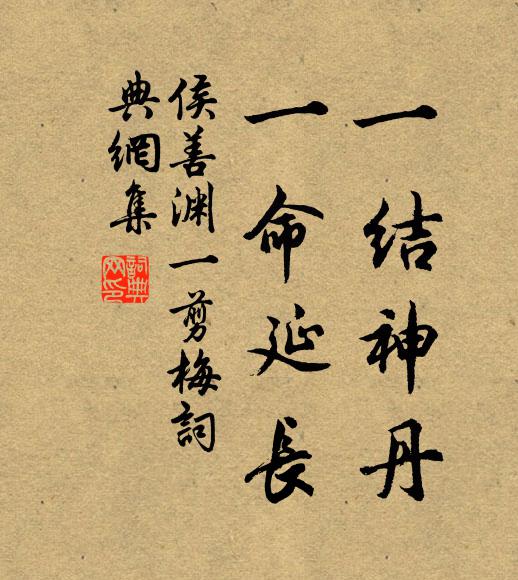 一结神丹
一命延長
侯善渊一剪梅詞
典網集
詞典
网印